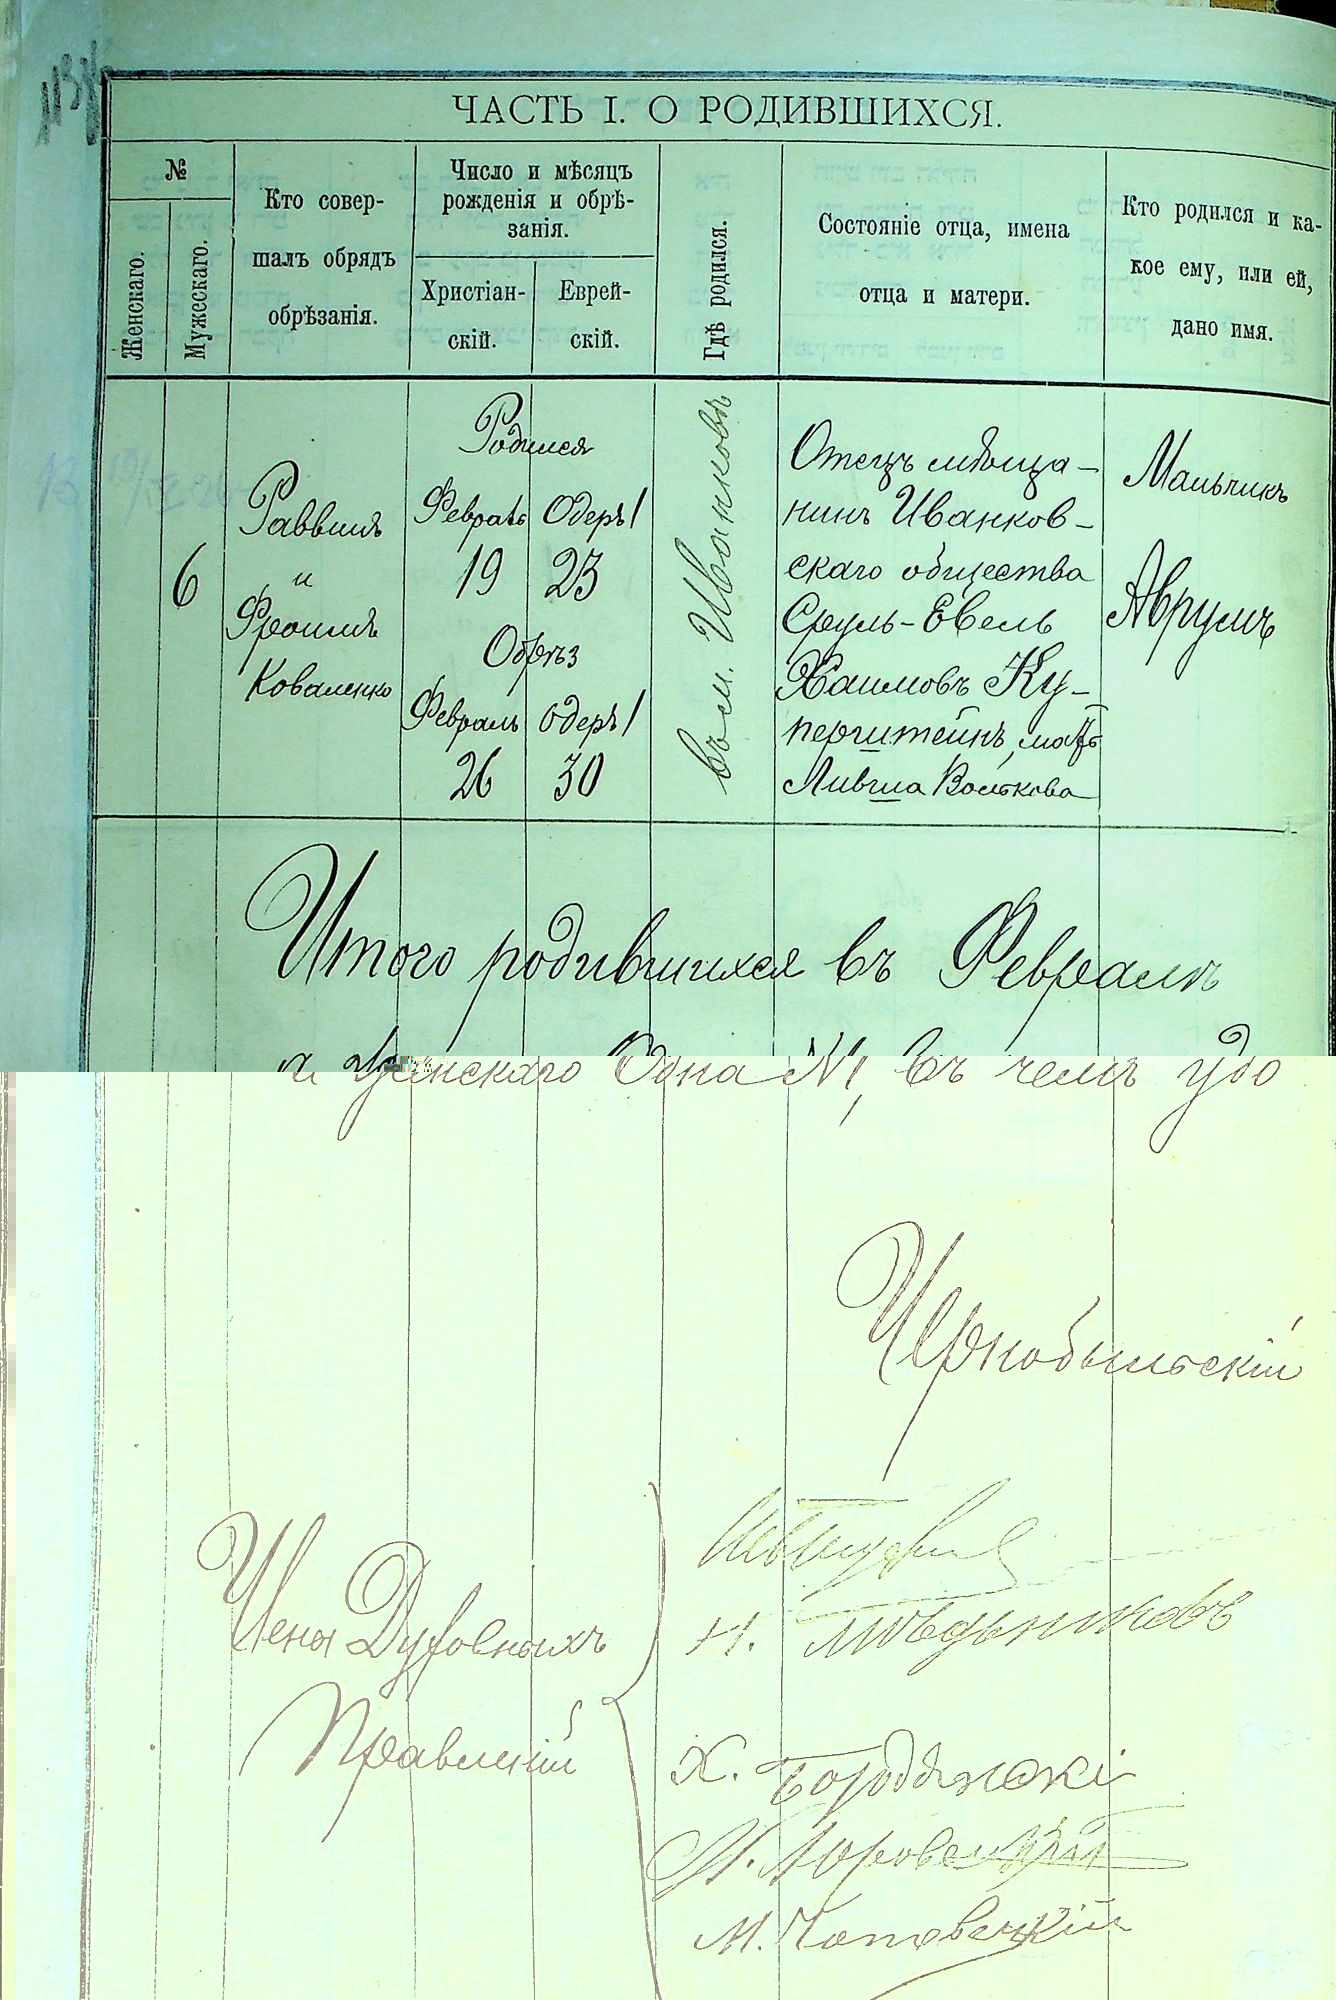 ЧАСТЬ I. О РОДИВШИХСЯ.
№
Женскаго.
Мужескаго.
Кто совер-
шалъ обрядъ
обрѣзанія.
Число и мѣсяцъ
рожденія и обрѣ-
занія.
Христіан-
скій.
Еврей-
скій.
Гдѣ родился.
Состояніе отца, имена
отца и матери.
Кто родился и ка-
кое ему, или ей,
дано имя.
6
Раввинъ
и
Фроимъ
Коваленко
Родился
Февраль Одеръ 1
19 23
Обрѣз
Февраль Одеръ 1
26 30
въ м. Иванковѣ
Отецъ мѣща-
нинъ Иванков-
скаго общества
Сруль-Евель
Хаимовъ Ку-
перштейнъ, мать
Лившa Волькова
Мальчикъ
Аврумъ
Итого родившихся въ Февралѣ
и женскаго Одна №1, въ чемъ удо
Чернобыльскій
Члены Духовныхъ
Правленій
Н. Мѣдниковъ
Х. Бородянскі